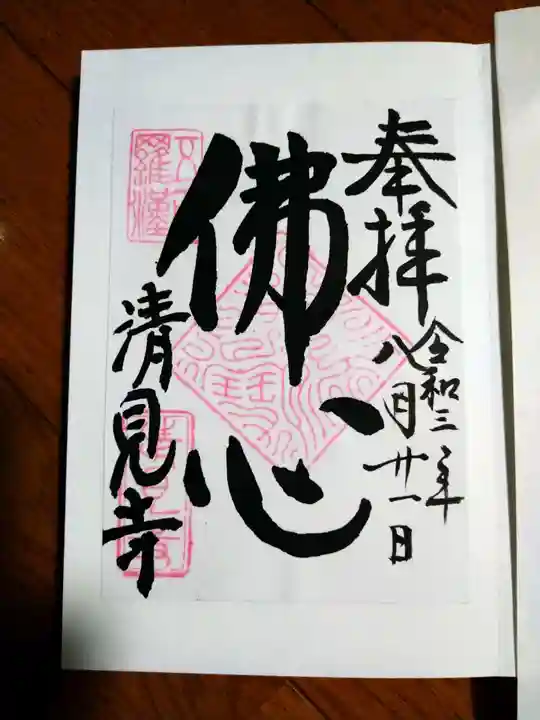 奉拝
令和三年
八月廿一日
佛心
五百羅漢
清見寺